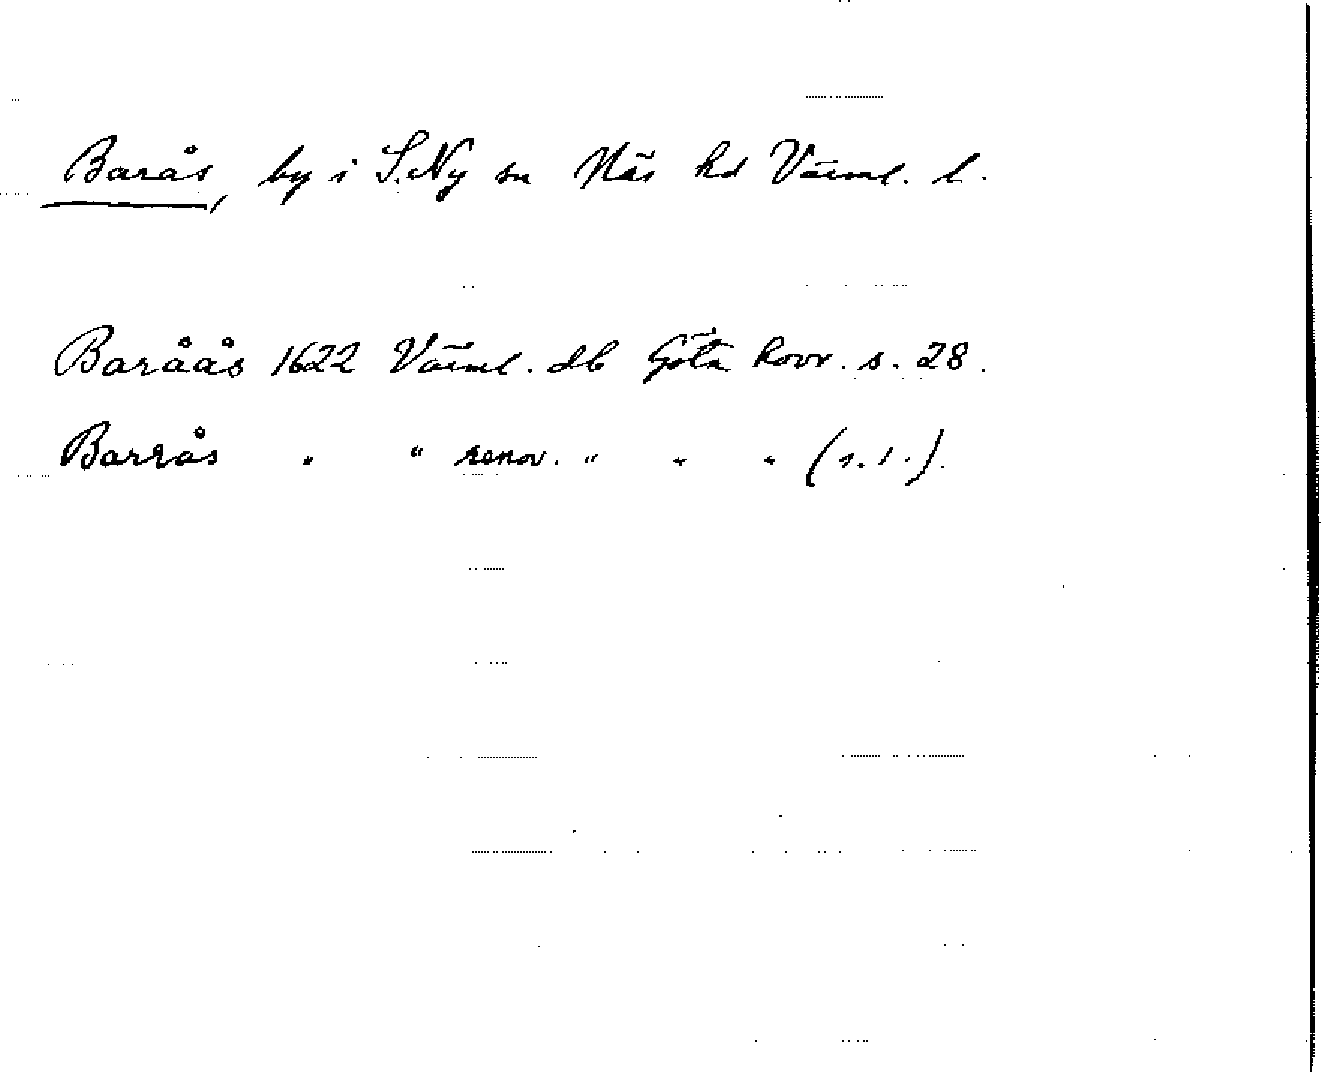 Barås, by i S. Ny sn Näs hd Värml. l.
Baråås 1622 Värml. db Göta hovr. s. 28.
Barrås " " renov. " " " (s. 1.).